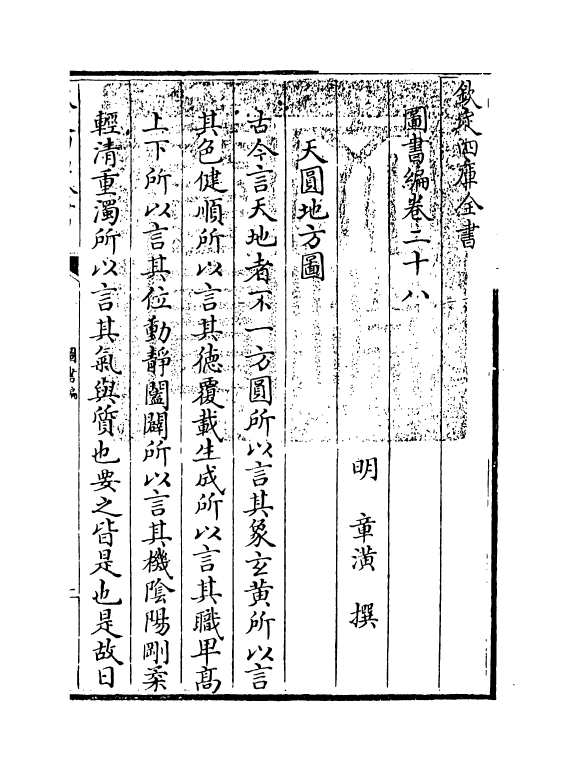 欽定四庫全書
圖書編卷二十八
明 章潢 撰
天圓地方圖
古今言天地者不一方圓所以言其象玄黄所以言
其色健順所以言其徳覆載生成所以言其職卑髙
上下所以言其位動靜闔闢所以言其機隂陽剛柔
輕清重濁所以言其氣與質也要之皆是也是故日
圖書編